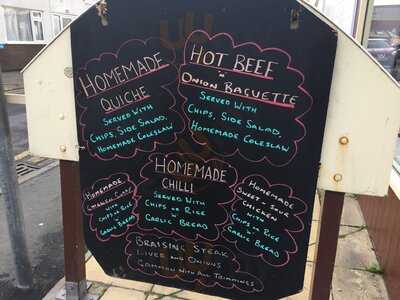 HOMEMADE
QUICHE
SERVED WITH
CHIPS, SIDE SALAD,
HOMEMADE COLESLAW
HOT BEEF
N
ONION BAGUETTE
SERVED WITH
CHIPS, SIDE SALAD,
HOMEMADE COLESLAW
HOMEMADE
CHILLI
SERVED WITH
CHIPS OR RICE
N
GARLIC BREAD
HOMEMADE
CHICKEN CURRY
WITH
CHIPS OR RICE
N
GARLIC BREAD
HOMEMADE
SWEET N SOUR
CHICKEN
WITH
CHIPS OR RICE
N
GARLIC BREAD
BRAISING STEAK
LIVER AND ONIONS
GAMMON WITH ALL TRIMMINGS